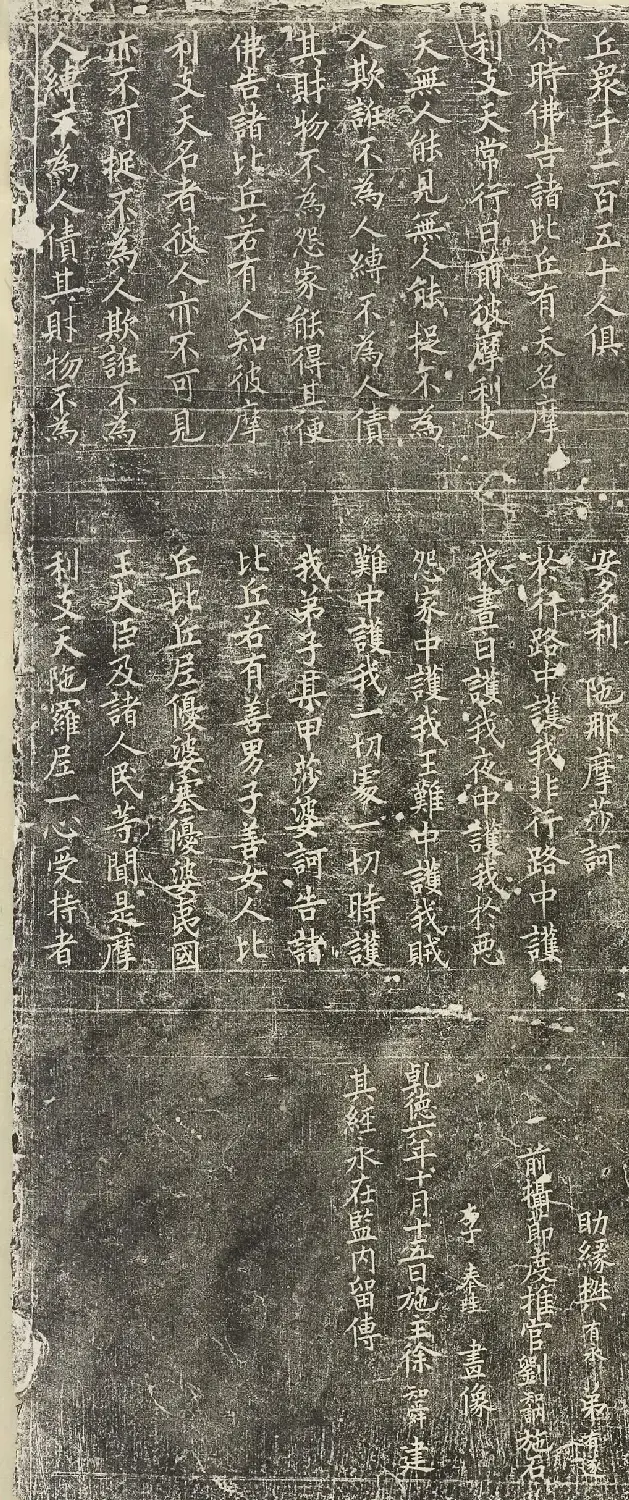 丘衆千二百五十人俱
尒時佛告諸比丘有天名摩
利支天常行日前彼摩利支
天無人能見無人能捉不為
人欺誑不為人縛不為人債
其財物不為怨家能得其便
佛告諸比丘若有人知彼摩
利支天名者彼人亦不可見
亦不可捉不為人欺誑不為
人縛不為人債其財物不為
安多利 陁那摩莎訶
於行路中護我非行路中護
我晝日護我夜中護我於惡
怨家中護我王難中護我賊
難中護我一切處一切時護
我弟子某甲莎婆訶告諸
比丘若有善男子善女人比
丘比丘尼優婆塞優婆夷國
王大臣及諸人民等聞是摩
利支天陁羅尼一心受持者
助緣樊 弟
前攝節度推官劉 施石
李 畫像
乹德六年十月十五日施主徐 知舜 建
其經永在監內留傳